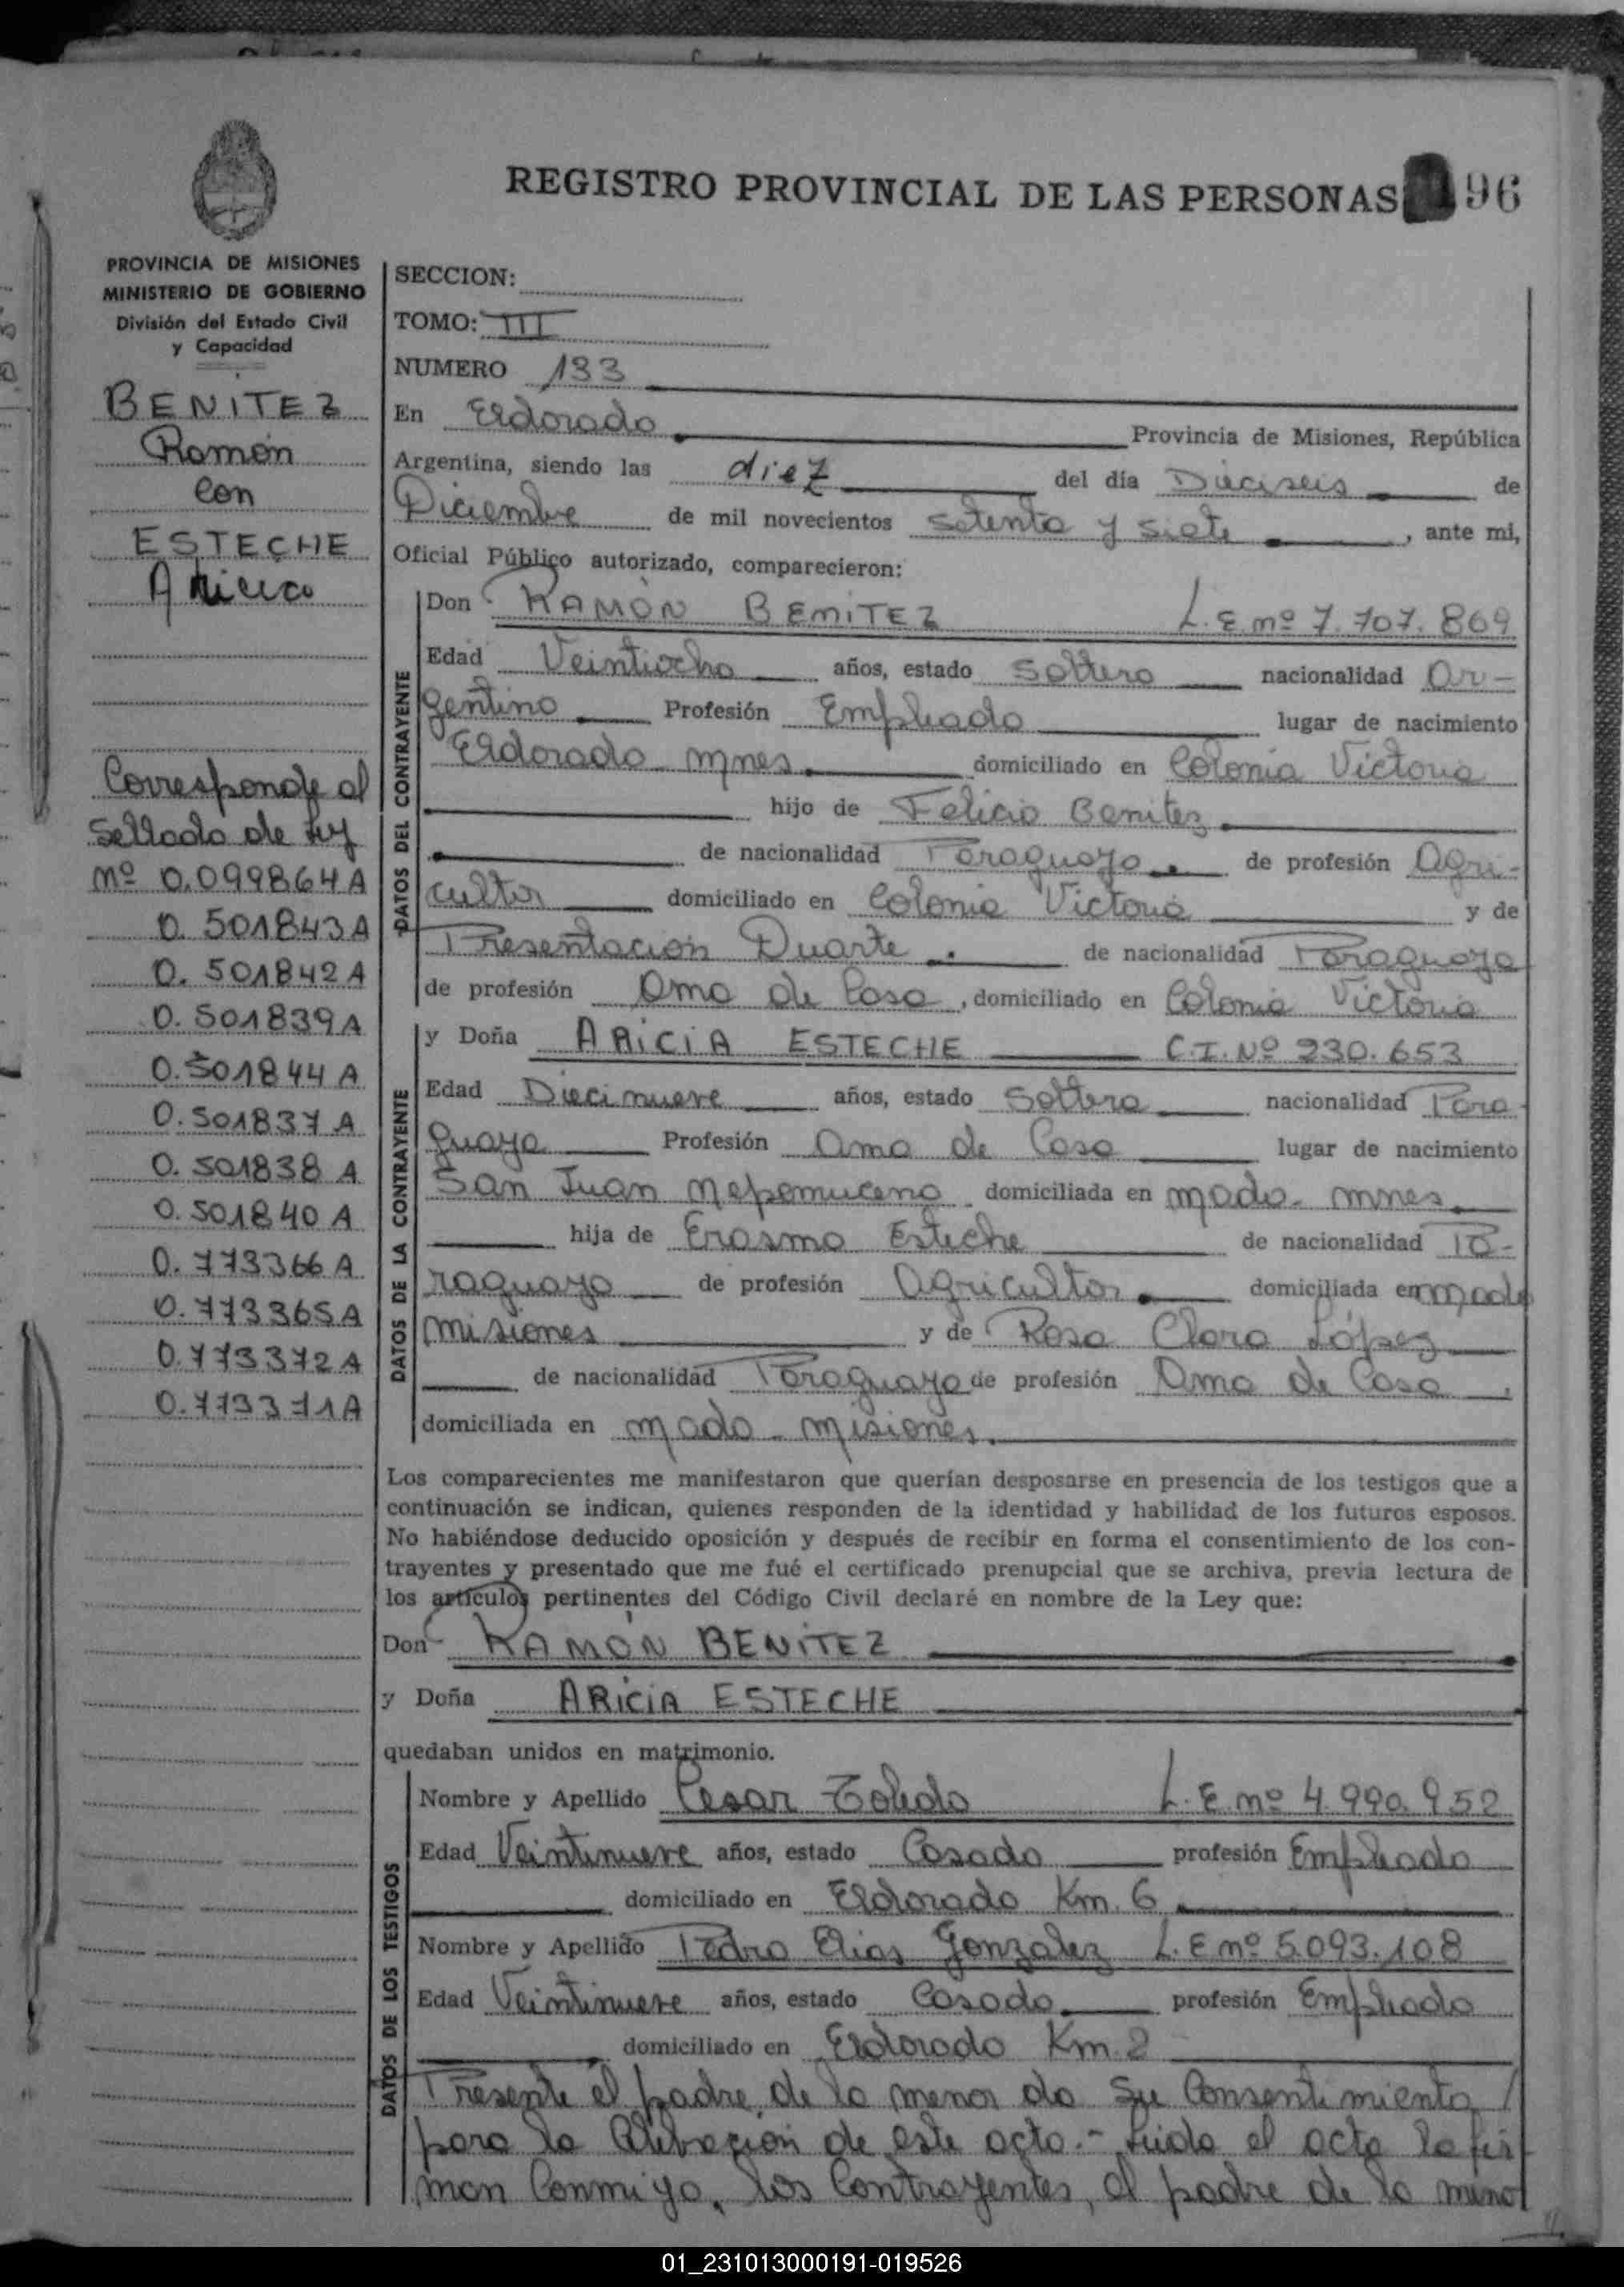 REGISTRO PROVINCIAL DE LAS PERSONAS 96
PROVINCIA DE MISIONES
MINISTERIO DE GOBIERNO
División del Estado Civil
y Capacidad
BENITEZ
Ramón
con
ESTECHE
Aricia
Corresponde al
Sellado de Ley
Nº 0.099864A
0.501843A
0.501842A
0.501839A
0.501844A
0.501837A
0.501838A
0.501840A
0.773366A
0.773365A
0.773372A
0.773371A
SECCION:
TOMO: III
NUMERO 133
En Eldorado Provincia de Misiones, República
Argentina, siendo las diez del día Dieciseis de
Diciembre de mil novecientos setenta y siete, ante mi,
Oficial Público autorizado, comparecieron:
DATOS DEL CONTRAYENTE
Don RAMÓN BENITEZ L.E. nº 7.707.869
Edad Veintiocho años, estado Soltero nacionalidad Ar-
gentino Profesión Empleado lugar de nacimiento
Eldorado mnes. domiciliado en Colonia Victoria
hijo de Felicio Benitez
de nacionalidad Paraguayo. de profesión Agri-
cultor domiciliado en Colonia Victoria y de
Presentación Duarte. de nacionalidad Paraguaya
de profesión Ama de Casa, domiciliado en Colonia Victoria
DATOS DE LA CONTRAYENTE
y Doña ARICIA ESTECHE C.I. Nº 230.653
Edad Diecinueve años, estado Soltera nacionalidad Para-
guaya Profesión Ama de Casa lugar de nacimiento
San Juan Nepomuceno domiciliada en mado- mnes.
hija de Erasmo Esteche de nacionalidad Pa-
raguayo de profesión Agricultor. domiciliada en mado
misiones y de Rosa Clara López
de nacionalidad Paraguaya de profesión Ama de Casa,
domiciliada en mado - misiones.
Los comparecientes me manifestaron que querían desposarse en presencia de los testigos que a
continuación se indican, quienes responden de la identidad y habilidad de los futuros esposos.
No habiéndose deducido oposición y después de recibir en forma el consentimiento de los con-
trayentes y presentado que me fué el certificado prenupcial que se archiva, previa lectura de
los artículos pertinentes del Código Civil declaré en nombre de la Ley que:
Don RAMÓN BENITEZ
y Doña ARICIA ESTECHE
quedaban unidos en matrimonio.
DATOS DE LOS TESTIGOS
Nombre y Apellido Cesar Toledo L.E. nº 4.990.952
Edad Veintinueve años, estado Casado profesión Empleado
domiciliado en Eldorado Km. 6
Nombre y Apellido Pedro Elias Gonzalez L.E nº 5.093.108
Edad Veintinueve años, estado Casado. profesión Empleado
domiciliado en Eldorado Km. 2
Presente el padre de la menor da su Consentimiento /
para la Celebración de este acto.- Leida el acta la fir
man Conmigo, los Contrayentes, el padre de la menor
01_231013000191-019526